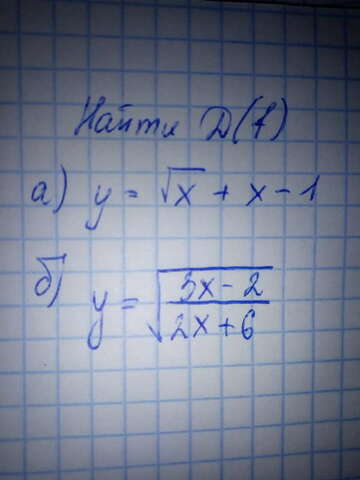 Найти D(f)
а) y = √x + x - 1
б) y = √((3x - 2)/(2x + 6))